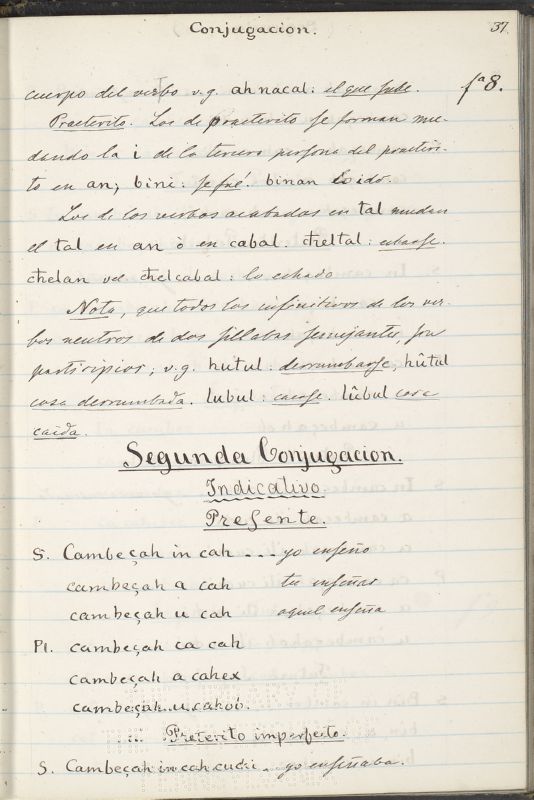 Conjugacion. 37
cuerpo del verbo v.g. ah nacal: el que sube. fᵃ 8.
Præterito. Los de præterito se forman mu-
dando la i de la tercera persona del præteri-
to en an, bini: se fué. binan lo ido.
Los de los verbos acabados en tal mudan
el tal en an ò en cabal. cħeltal: echarse.
cħelan vel cħelcabal: lo echado
Nota, que todos los infinitivos de los ver-
bos neutros de dos sillabas semejantes, son
participios; v.g. hutul: derrumbarse, hûtul
cosa derrumbada. lubul: caerse. lûbul cosa
caida.
Segunda Conjugacion.
Indicativo
Presente.
S. Cambeçah in cah .... yo enseño
cambeçah a cah tu enseñas
cambeçah u cah aquel enseña
Pl. cambeçah ca cah
cambeçah a cahex
cambeçah u cahob.
Preterito imperfecto.
S. Cambeçah in cah cuchi .. yo enseñaba.